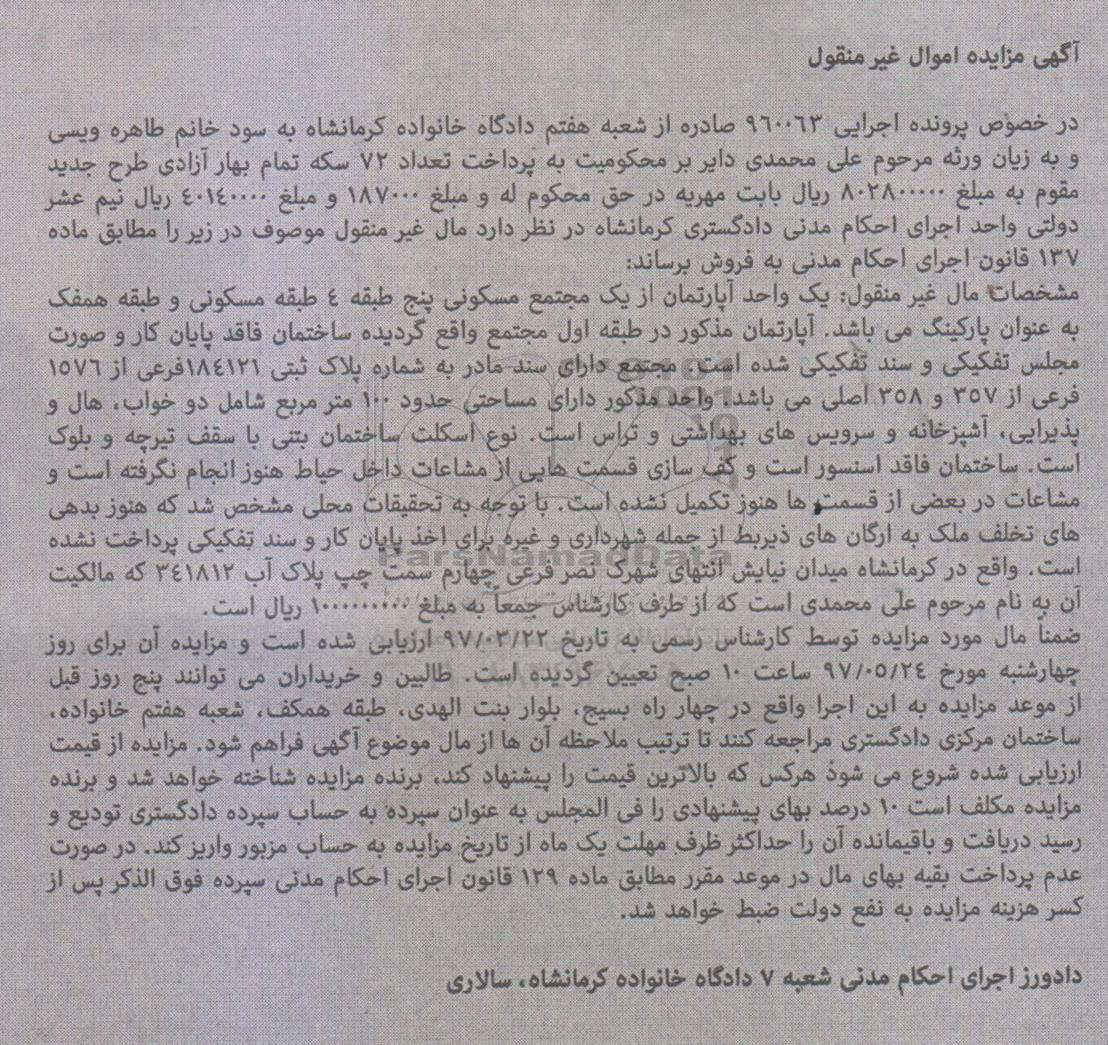 آگهی مزایده اموال غیر منقول
در خصوص پرونده اجرایی ۹۶۰۰۶۳ صادره از شعبه هفتم دادگاه خانواده کرمانشاه به سود خانم طاهره ویسی
و به زیان ورثه مرحوم علی محمدی دایر بر محکومیت به پرداخت تعداد ۷۲ سکه تمام بهار آزادی طرح جدید
مقوم به مبلغ ۸۰۲۸۰۰۰۰۰ ریال بابت مهریه در حق محکوم له و مبلغ ۱۸۷۰۰۰ و مبلغ ۴۰۱۴۰۰۰۰ ریال نیم عشر
دولتی واحد اجرای احکام مدنی دادگستری کرمانشاه در نظر دارد مال غیر منقول موصوف در زیر را مطابق ماده
۱۳۷ قانون اجرای احکام مدنی به فروش برساند:
مشخصات مال غیر منقول: یک واحد آپارتمان از یک مجتمع مسکونی پنج طبقه ۴ طبقه مسکونی و طبقه همفک
به عنوان پارکینگ می باشد. آپارتمان مذکور در طبقه اول مجتمع واقع گردیده ساختمان فاقد پایان کار و صورت
مجلس تفکیکی و سند تفکیکی شده است. مجتمع دارای سند مادر به شماره پلاک ثبتی ۱۸۴۱۲۱فرعی از ۱۵۷۶
فرعی از ۳۵۷ و ۳۵۸ اصلی می باشد. واحد مذکور دارای مساحتی حدود ۱۰۰ متر مربع شامل دو خواب، هال و
پذیرایی، آشپزخانه و سرویس های بهداشتی و تراس است. نوع اسکلت ساختمان بتنی با سقف تیرچه و بلوک
است. ساختمان فاقد اسنسور است و کف سازی قسمت هایی از مشاعات داخل حیاط هنوز انجام نگرفته است و
مشاعات در بعضی از قسمت ها هنوز تکمیل نشده است. با توجه به تحقیقات محلی مشخص شد که هنوز بدهی
های تخلف ملک به ارگان های ذیربط از جمله شهرداری و غیره برای اخذ پایان کار و سند تفکیکی پرداخت نشده
است. واقع در کرمانشاه میدان نیایش انتهای شهرک نصر فرعی چهارم سمت چپ پلاک آب ۳۴۱۸۱۲ که مالکیت
آن به نام مرحوم علی محمدی است که از طرف کارشناس جمعا به مبلغ ۱۰۰۰۰۰۰۰۰۰ ریال است.
ضمناً مال مورد مزایده توسط کارشناس رسمی به تاریخ ۹۷/۰۳/۲۲ ارزیابی شده است و مزایده آن برای روز
چهارشنبه مورخ ۹۷/۰۵/۲۴ ساعت ۱۰ صبح تعیین گردیده است. طالبین و خریداران می توانند پنج روز قبل
از موعد مزایده به این اجرا واقع در چهار راه بسیج، بلوار بنت الهدی، طبقه همکف، شعبه هفتم خانواده،
ساختمان مرکزی دادگستری مراجعه کنند تا ترتیب ملاحظه آن ها از مال موضوع آگهی فراهم شود. مزایده از قیمت
ارزیابی شده شروع می شود هرکس که بالاترین قیمت را پیشنهاد کند، برنده مزایده شناخته خواهد شد و برنده
مزایده مکلف است ۱۰ درصد بهای پیشنهادی را فی المجلس به عنوان سپرده به حساب سپرده دادگستری تودیع و
رسید دریافت و باقیمانده آن را حداکثر ظرف مهلت یک ماه از تاریخ مزایده به حساب مزبور واریز کند. در صورت
عدم پرداخت بقیه بهای مال در موعد مقرر مطابق ماده ۱۲۹ قانون اجرای احکام مدنی سپرده فوق الذکر پس از
کسر هزینه مزایده به نفع دولت ضبط خواهد شد.
دادورز اجرای احکام مدنی شعبه ۷ دادگاه خانواده کرمانشاه، سالاری
ParsNamadData